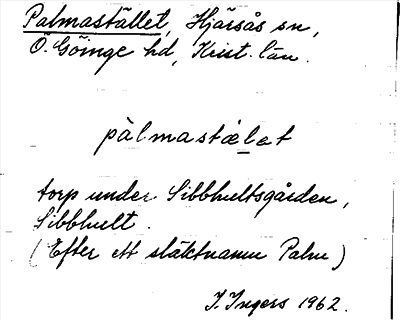 Palmastället, Hjärsås sn,
Ö. Göinge hd, Krist. län.
pàlmastælet
torp under Sibbhultsgården,
Sibbhult.
(Efter ett släktnamn Palm)
I. Ingers 1962.